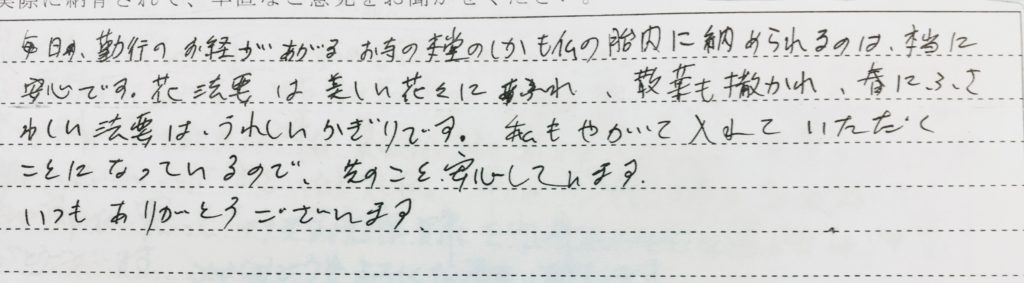 実際に納骨されて、率直なご意見をお聞かせください。
毎日の、勤行のお経があがるお寺の本堂のしかも仏の胎内に納められるのは、本当に
安心です。花法要は美しい花々に囲まれ、散華も撒かれ、春にふさ
わしい法要は、うれしいかぎりです。私もやがて入れていただく
ことになっているので、先のこと安心しています。
いつもありがとうございます。